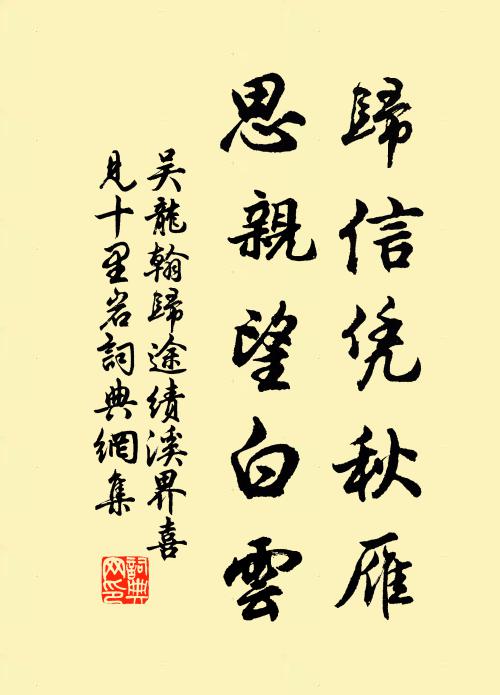 歸信凭秋雁
思親望白雲
吴龍翰歸途績溪界喜
見十里岩詞典網集
詞典网印